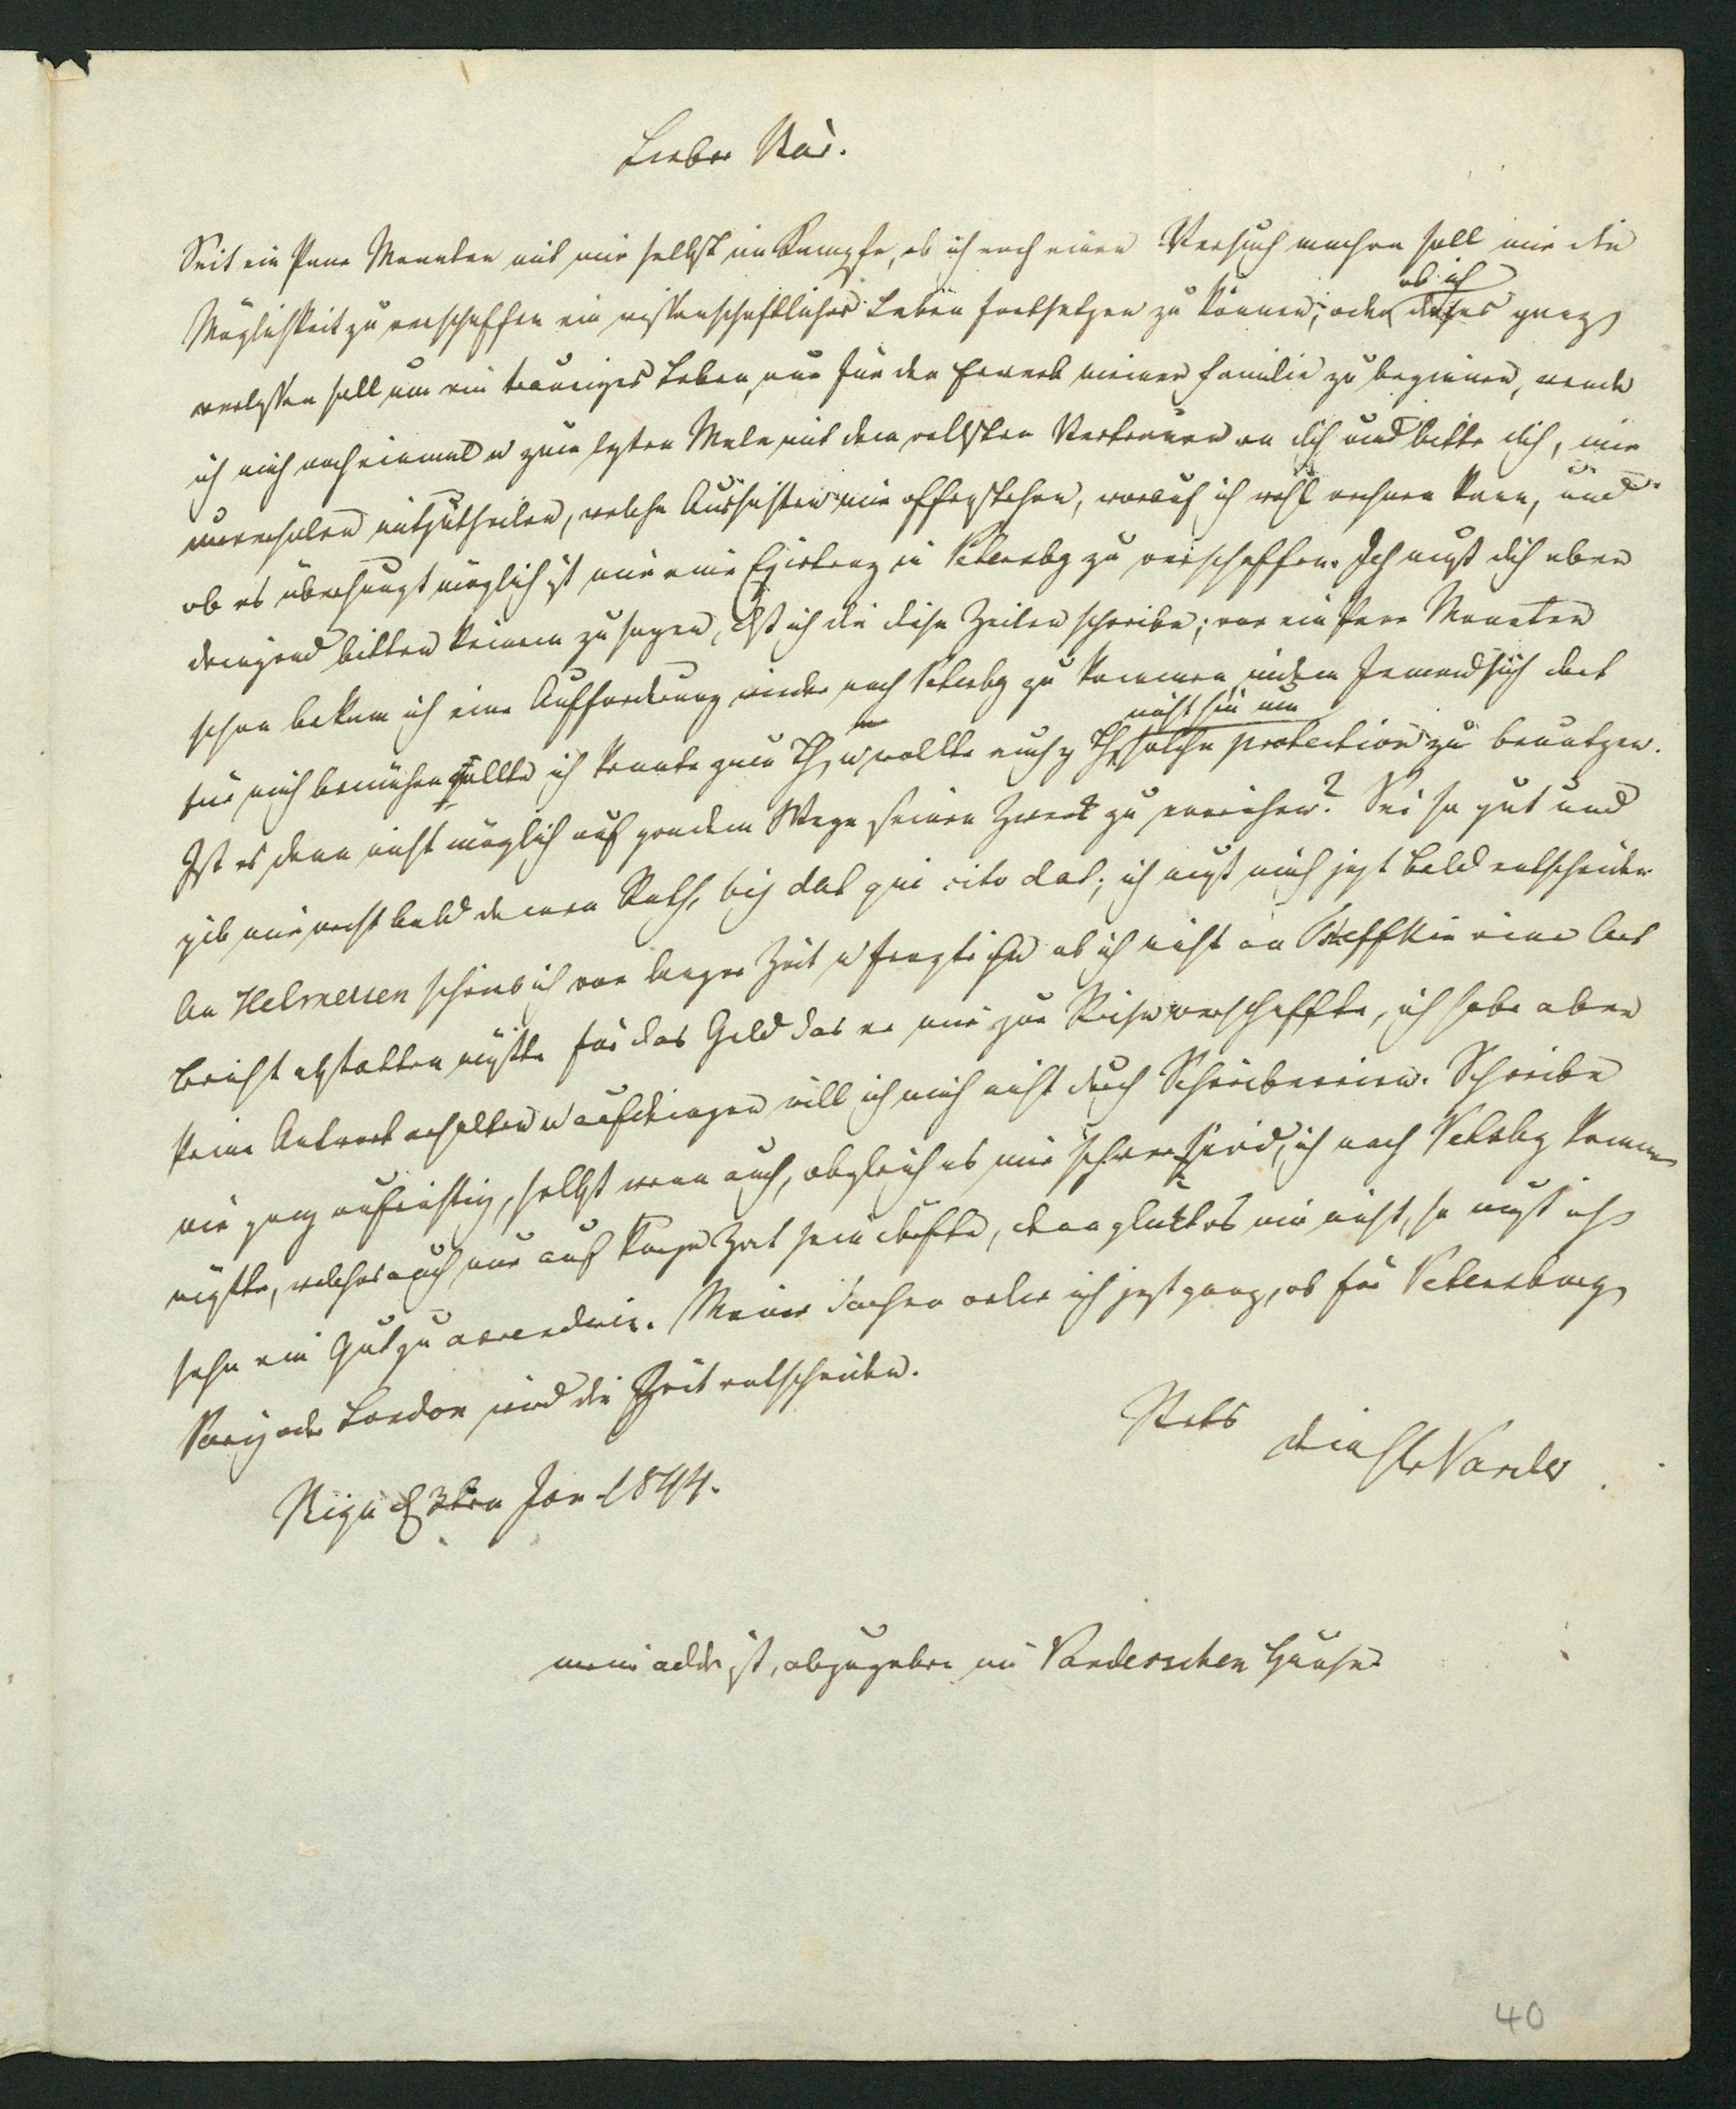 Lieber Bär.
Seit ein Paar Monaten mit mir selbst im Kampfe, ob ich noch einen Versuch machen soll mir die
Möglichkeit zu verschaffen ein wissenschaftliches Leben fortsetzen zu können, oder ob ich dieses ganz
verlassen soll um ein trauriges Leben nur für den Erwerb meiner Familie zu beginnen, wende
ich mich noch einmal u zum lezten Male mit dem vollsten Vertrauen an dich und bitte dich, mir
mitzutheilen, welche Aussichten mir offenstehen, worauf ich wohl rechnen kann, und
ob es überhaupt möglich ist mir eine Existenz in Petersbg zu verschaffen. Ich muß dich aber
dringend bitten keinem zu sagen, daß ich dir diese Zeilen schreibe; vor ein Paar Monaten
schon bekam ich eine Aufforderung wieder nach Petersbg zu kommen indem Jemand sich dort
für mich bemühen wollte ich konnte zum Th u wollte auch nicht hin um solche protection zu benutzen.
Ist es denn nicht möglich auf geradem Wege seinen Zweck zu erreichen? Sei so gut und
gib mir recht bald deinen Rath, bis dat qui cito dat; ich muß mich jezt bald entscheiden
An Helmersen schrieb ich vor langer Zeit u fragte ihn ob ich nicht an Tscheffkin eine Art
Bericht abstatten müßte für das Geld das er mir zur Reise verschaffte, ich habe aber
keine Antwort erhalten u aufdringen will ich mich nicht durch Schreibereien. Schreibe
mir ganz aufrichtig, selbst wenn auch, obgleich es mir schwer wird, ich nach Petersbg kommen
müßte, welches auch nur auf kurze Zeit sein dürfte, denn glückt es mir nicht, so muß ich
sehn ein Gut zu arrendiren. Meine Sachen ordne ich jezt ganz, ob für Petersburg,
Paris oder London wird die Zeit entscheiden.
Stets dein Chr Pander
Riga d 3ten Jan 1844.
meine addr ist, abzugeben im Panderschen Hause
40